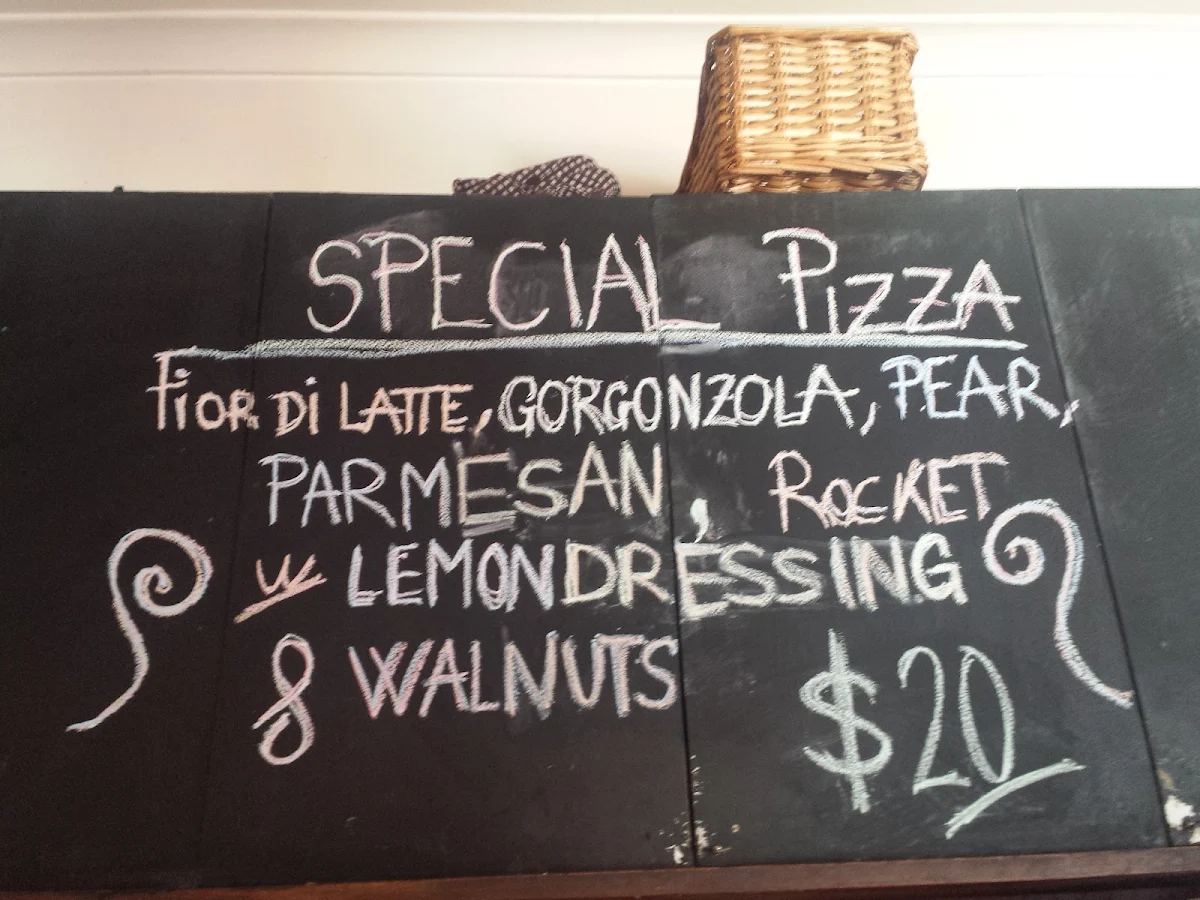 SPECIAL PIZZA
FIOR DI LATTE, GORGONZOLA, PEAR,
PARMESAN, ROCKET
W/ LEMON DRESSING
& WALNUTS
$20